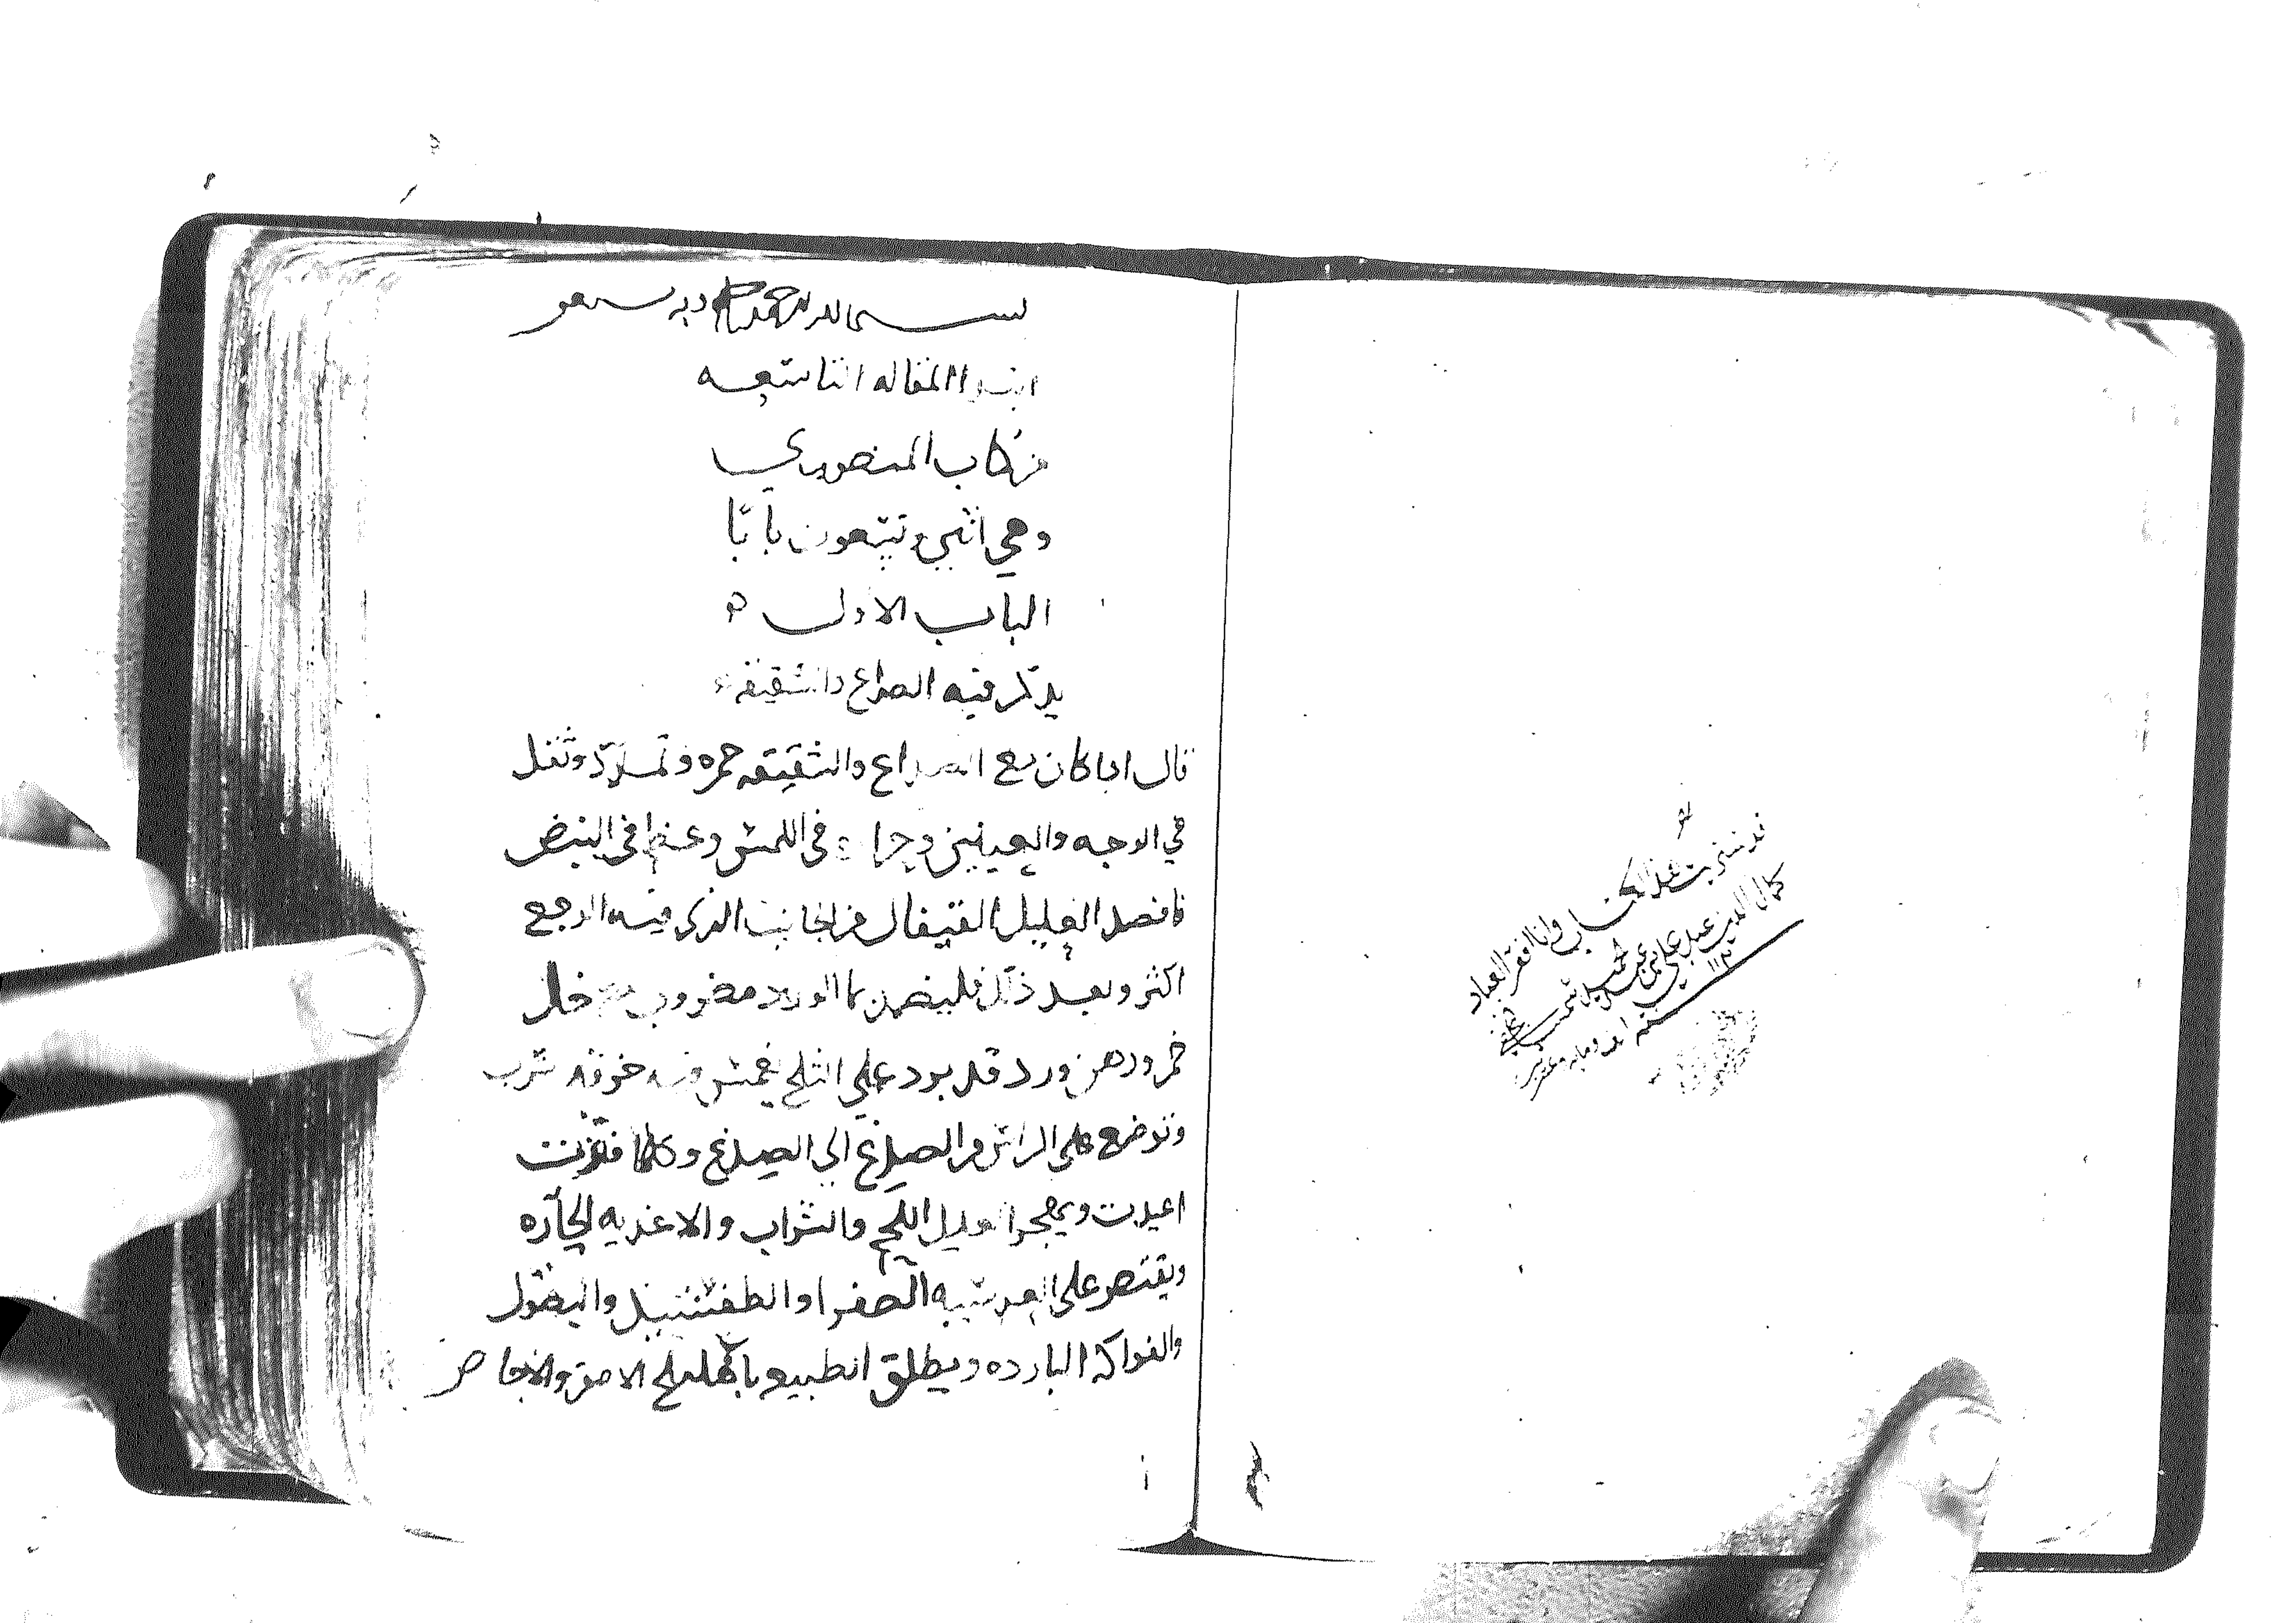 بسم الله الرحمن الرحيم وبه نستعين
ابتدا المقاله التاسعه
من كتاب المنصوري
وهي اثني وتسعون بابا
الباب الاول
يذكر فيه الصداع والشقيقه
قال اذا كان مع الصداع والشقيقه حمره وتمدد وثقل
في الوجه والعينين وحراره في اللمس وعظم في النبض
فافصد العليل القيفال من الجانب الذي فيه الوجع
اكثر وبعد ذلك فليضمد بما الورد مضروب مع خل
خمر ودهن ورد قد برد علي الثلج يغمس فيه خرقه شرب
وتوضع علي الراس من الصدغ الي الصدغ وكلما فترت
اعيدت ويهجر العليل اللحم والشراب والاغذيه الحاره
ويقتصر علي العدسيه الصفرا والطفشيل والبقول
والفواكه البارده ويطلق الطبيعه بالهليلج الاصفر والاجاص
قد اشتريت هذا الكتاب وانا افقر العباد
كمال الدين عبد علي بن عبد الحميد
سنه الف ومايه